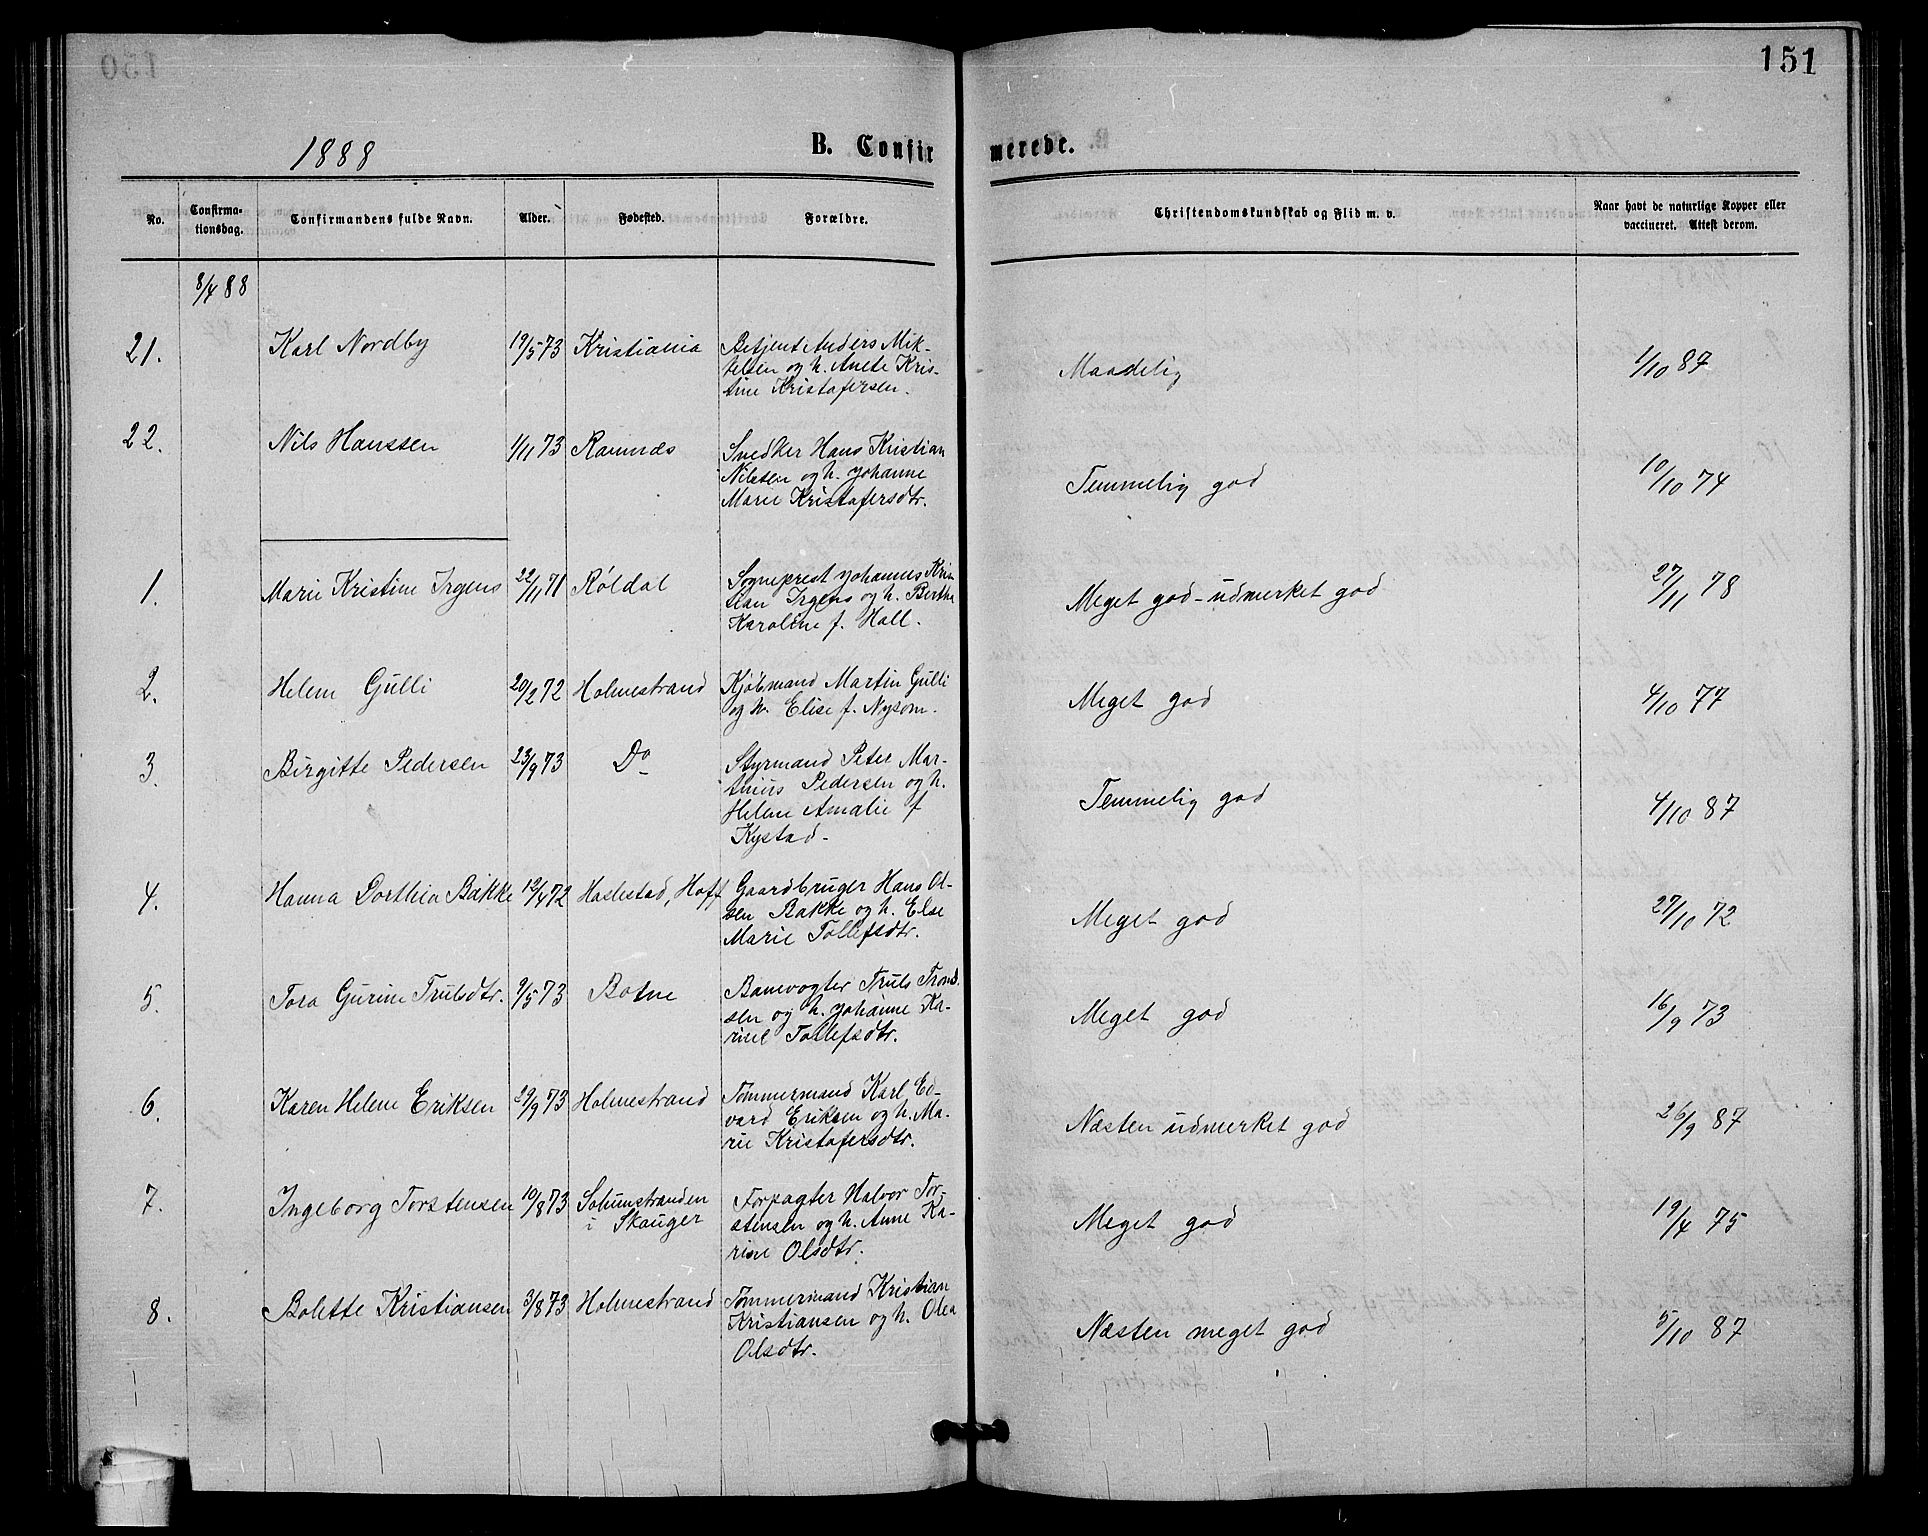 151
1888
B. Confirmerede.
No.
Confirma-
tionsdag.
Confirmandens fulde Navn.
Alder.
Fødested.
Forældre.
Christendomskundskab og Flid m. v.
Naar havt de naturlige Kopper eller
vaccineret. Attest derom.
8/4 88
21. Karl Nordby 19/5 73 Kristiania Betjent Anders Mik-
kelsen og h. Anete Kris-
tine Kristofersen.
Maadelig 1/10 87
22. Nils Hanssen 1/11 73 Ramnæs Snedker Hans Kristian
Nilsen og h. Johanne
Marie Kristofersdtr.
Temmelig god 10/10 74
1. Marie Kristine Irgens 22/11 71 Røldal Sogneprest Johannes Kris
tian Irgens og h. Bertha
Karoline f. Hall.
Meget god - udmerket god 27/11 78
2. Helene Gulli 20/2 72 Holmestrand Kjøbmand Martin Gulli
og h. Elise f. Nysom.
Meget god 4/10 77
3. Birgitte Pedersen 23/9 73 Do Styrmand Peter Mar-
tinius Pedersen og h.
Helene Amalie f
Kystad-
Temmelig god 4/10 87
4. Hanna Dorthea Bakke 12/4 72 Haslestad, Hoff Gaardbruger Hans Ol-
sen Bakke og h. Else
Marie Tollefsdtr.
Meget god 27/10 72
5. Tora Gurine Trulsdtr. 9/5 73 Botne Banevogter Truls Trond
sen og h. Johanne Ka-
rine Tollefsdtr.
Meget god 16/9 73
6. Karen Helene Eriksen 29/9 73 Holmestrand Tømmermand Karl Ed-
vard Eriksen og h. Ma-
rie Kristofersdtr.
Næsten udmerket god 26/9 87
7. Ingeborg Torstensen 10/8 73 Solumstranden
i Skauger Forpagter Halvor Tor-
stensen og h. Anne Ka-
rine Olsdtr.
Meget god 19/4 75
8. Bolette Kristiansen 3/8 73 Holmestrand Tømmermand Kristian
Kristiansen og h. Olea
Olsdtr.
Næsten meget god 5/10 87